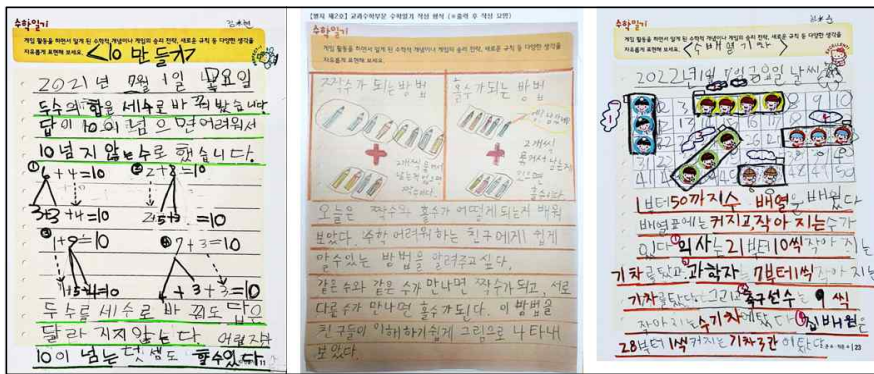 수학일기
게임 활동을 하면서 알게 된 수학적 개념이나 게임의 승리 전략, 새로운 규칙 등 다양한 생각을
자유롭게 표현해 보세요.
<10 만들기>
2021년 7월 1일 목요일
두수의 합을 세수로 바꿔 봤습니다
답이 10이 넘으면 어려워서
10 넘지 않는 수로 했습니다.
① 6+4=10
3+3+4=10
② 2+8=10
2+5+3=10
③ 1+9=10
1+5+4=10
④ 7+3=10
4+3+3=10
두수를 세수로 바꿔도 답은
달라지지 않는다.
10이 넘는 덧셈도 할 수 있다.
【별지 제2호】 교과수학부문 수학일기 작성 양식 (※출력 후 작성 요망)
수학일기
게임 활동을 하면서 알게 된 수학적 개념이나 게임의 승리 전략, 새로운 규칙 등 다양한 생각을
자유롭게 표현해 보세요.
짝수가 되는 방법
홀수가 되는 방법
2개씩
오늘은 짝수와 홀수가 어떻게 되는지 배워
보았다. 수학 어려워하는 친구에게 쉽게
알 수 있는 방법을 알려주고 싶다.
같은 수와 같은 수가 만나면 짝수가 되고, 서로
다른 수가 만나면 홀수가 된다. 이 방법을
친구들이 이해하기 쉽게 그림으로 나타내
보았다.
수학일기
게임 활동을 하면서 알게 된 수학적 개념이나 게임의 승리 전략, 새로운 규칙 등 다양한 생각을
자유롭게 표현해 보세요.
<수배열 기차>
EXCELLENT!
2022년 1월 7일 금요일 날씨
1부터 50까지 수 배열을 배웠다
배열표에는 커지고, 작아지는 수가
있다 의사는 21부터 10씩 작아지는
기차를 탔고 과학자는 7부터 1씩 작아지는
기차를 탔다 그리고 축구선수는 9씩
작아지는 수 기차에 탔다 집배원은
28부터 1씩 커지는 기차 3칸에 탔다